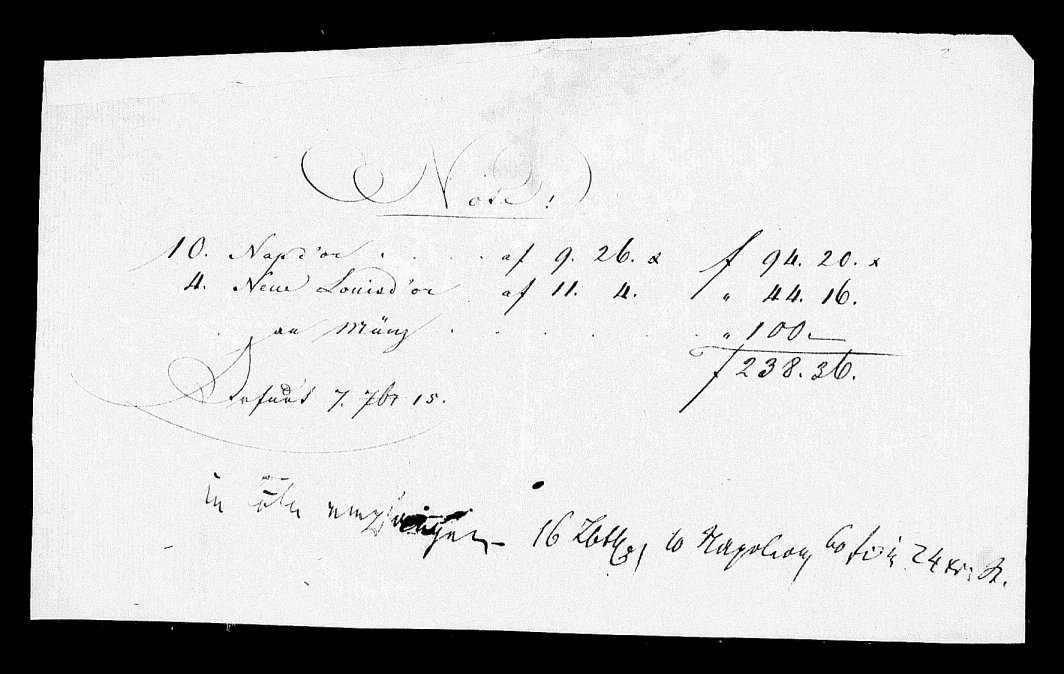 Note!
10. Nap d'or . . . . . af 9. 26. x f 94. 20. x
4. Neue Louisd'or af 11. 4. " 44. 16.
an Münz . . . . . " 100.—
f 238. 36.
Erfurt 7. 7br 15.
in empfangen 16 10 Napoleon 24